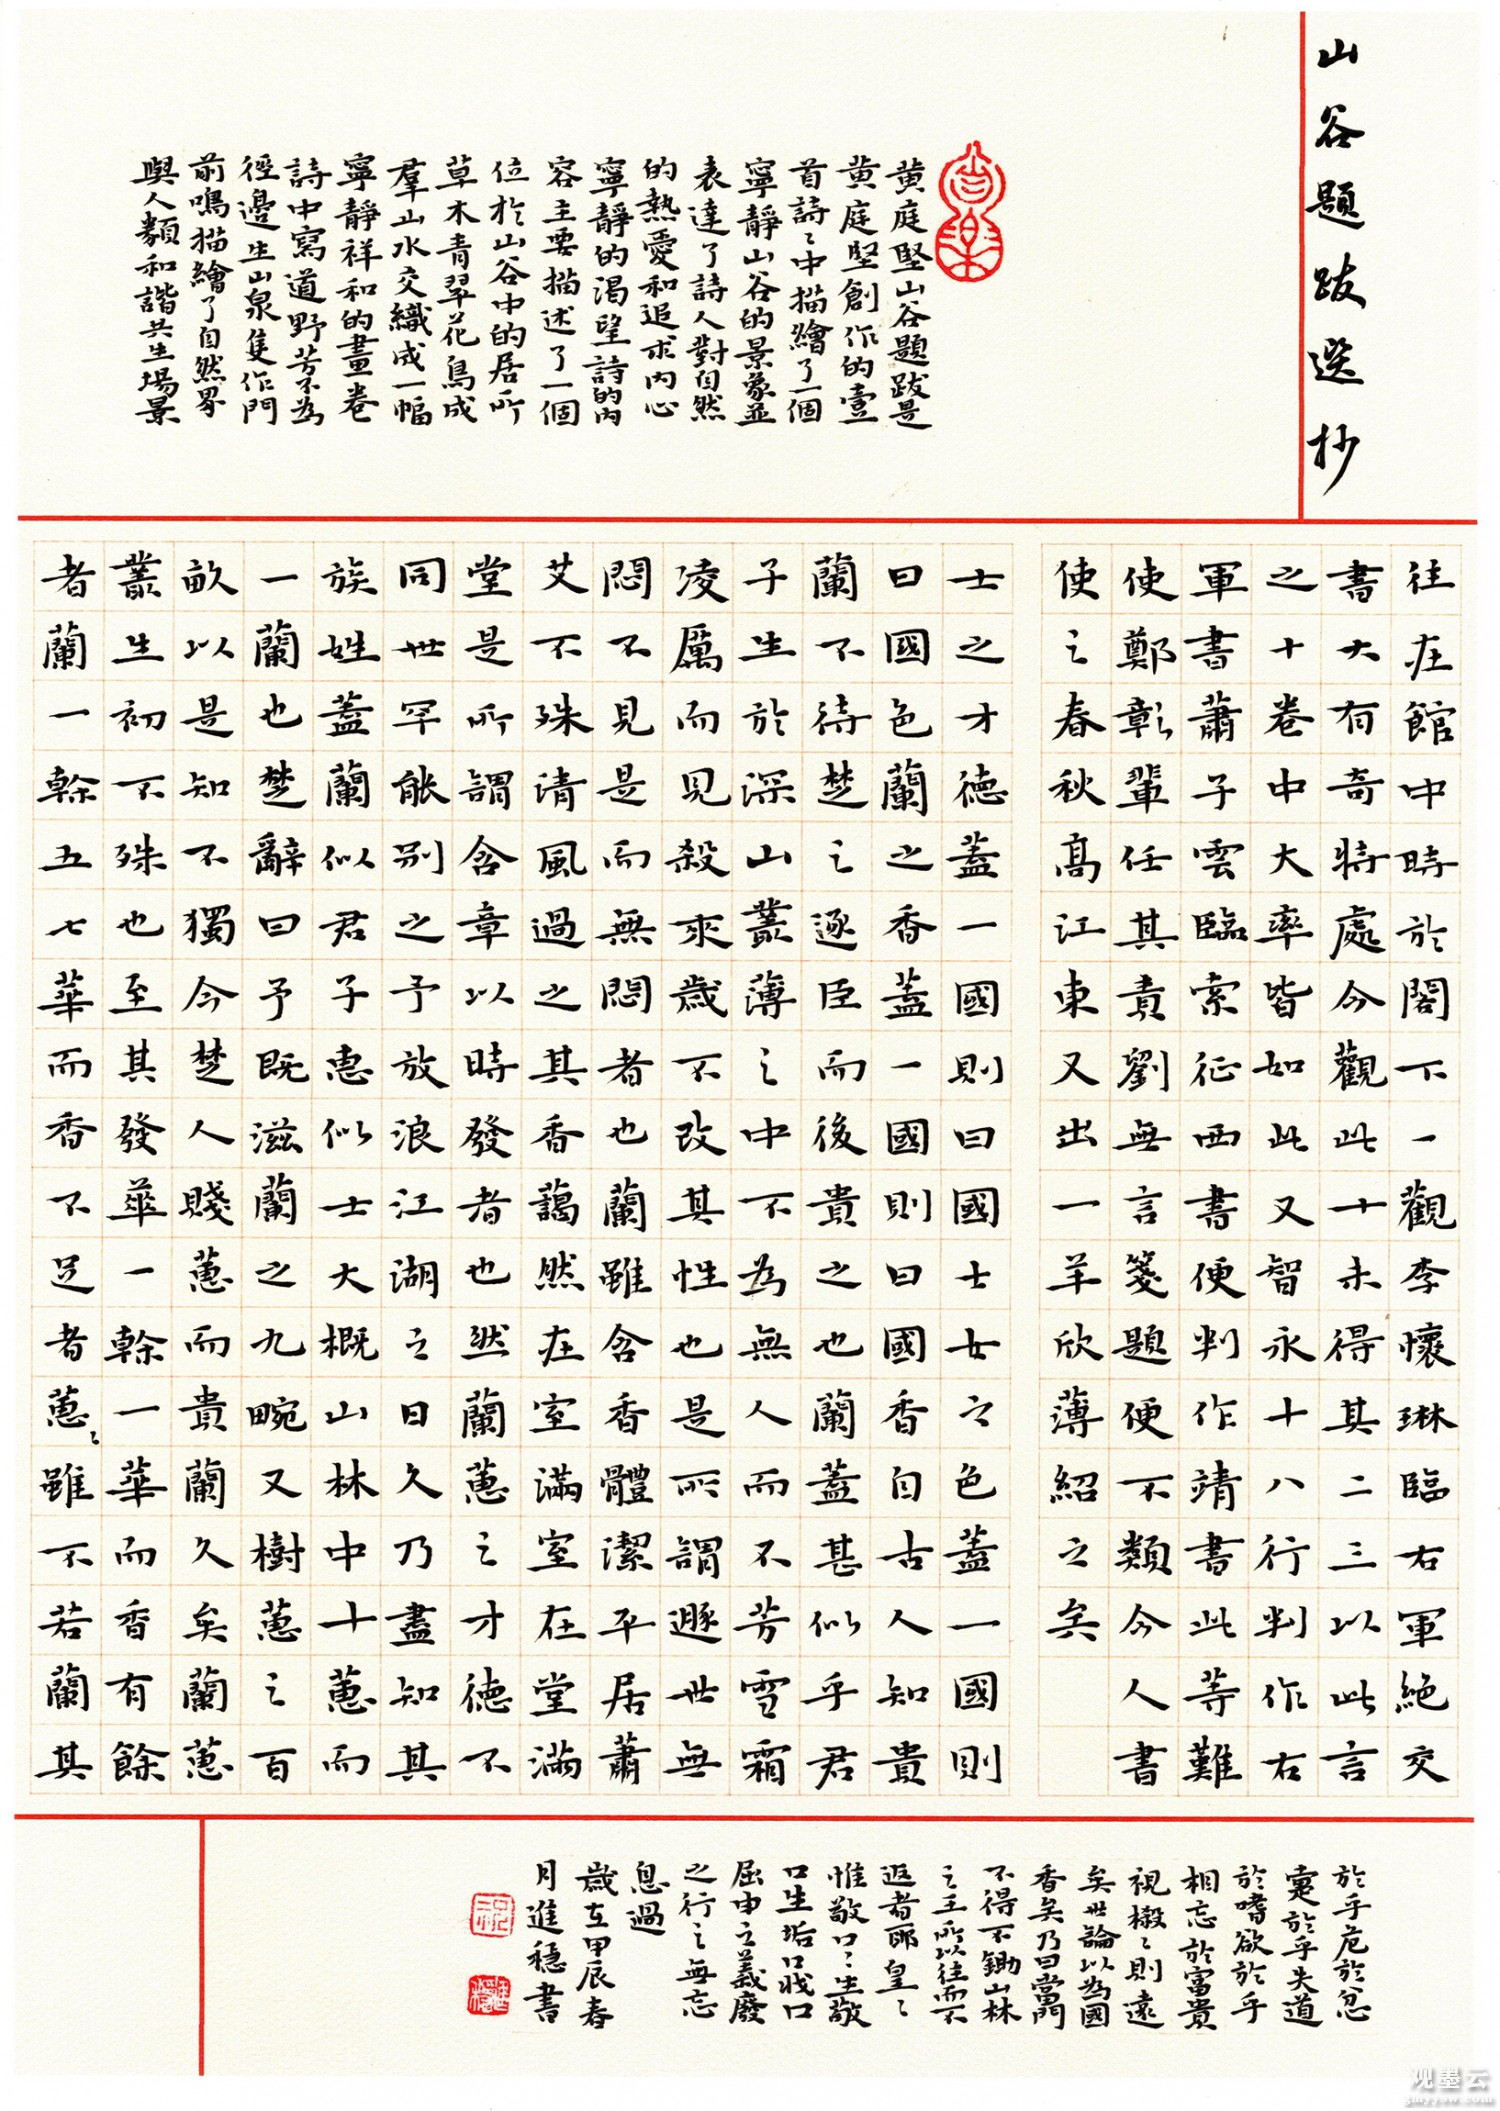 山谷題跋選抄
黄庭堅山谷題跋是
黄庭堅創作的壹
首詩〻中描繪了一個
寧靜山谷的景象並
表達了詩人對自然
的熱愛和追求内心
寧靜的渴望詩的内
容主要描述了一個
位於山谷中的居所
草木青翠花鳥成
羣山水交織成一幅
寧靜祥和的畫卷
詩中寫道野芳不為
徑邊生山泉隻作門
前鳴描繪了自然界
與人類和諧共生場景
往在館中時於閣下一觀李懷琳臨右軍絶交
書大有奇特處今觀此十未得其二三以此言
之十卷中大率皆如此又智永十八行判作右
軍書蕭子雲臨索征西書便判作靖書此等難
使鄭彰輩任其責劉無言箋題便不類今人書
使之春秋高江東又出一羊欣薄紹之矣
士之才德蓋一國則曰國士女之色蓋一國則
曰國色蘭之香蓋一國則曰國香自古人知貴
蘭不待楚之逐臣而後貴之也蘭蓋甚似乎君
子生於深山叢薄之中不為無人而不芳雪霜
凌厲而見殺來歲不改其性也是所謂遯世無
悶不見是而無悶者也蘭雖含香體潔平居蕭
艾不殊清風過之其香藹然在室滿室在堂滿
堂是所謂含章以時發者也然蘭蕙之才德不
同世罕能别之予放浪江湖之日久乃盡知其
族姓蓋蘭似君子蕙似士大概山林中十蕙而
一蘭也楚辭曰予既滋蘭之九畹又樹蕙之百
畝以是知不獨今楚人賤蕙而貴蘭久矣蘭蕙
叢生初不殊也至其發華一幹一華而香有餘
者蘭一幹五七華而香不足者蕙〻雖不若蘭其
於乎危於忿
疐於乎失道
於嗜欲於乎
相忘於富貴
視椒〻則遠
矣世論以為國
香矣乃曰當門
不得不鋤山林
之士所以往而不
返者耶皇〻
惟敬口〻生敬
口生垢口戕口
屈申之義廢
之行之無忘
息過
歲在甲辰春
月進穩書
观墨云
gmyyow.com